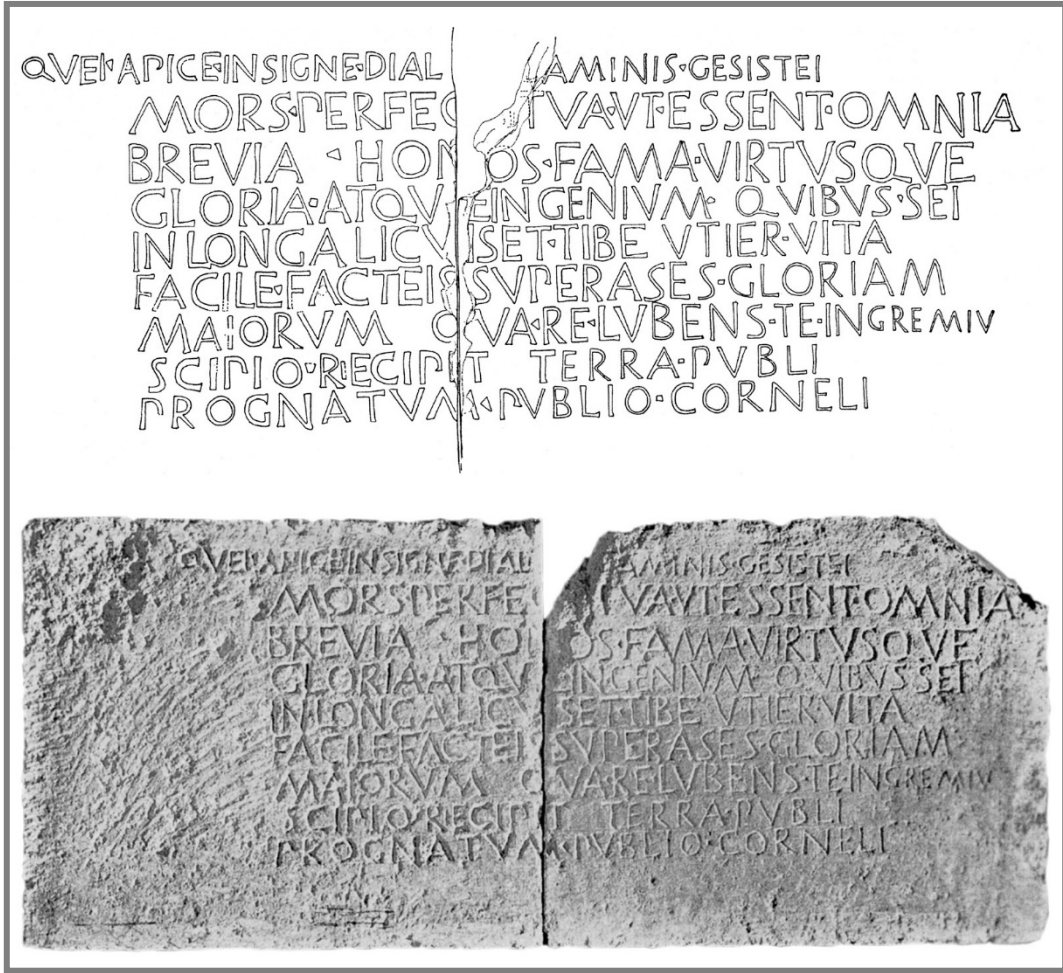 QVEI·APICE·INSIGNE·DIAL AMINIS·GESISTEI
MORS·PERFEC TVA·VT·ESSENT·OMNIA
BREVIA · HONOS·FAMA·VIRTVSQVE
GLORIA·ATQVE INGENIVM· QVIBVS·SEI
IN LONGA LICVISET·TIBE VTIER·VITA
FACILE·FACTEIS SVPERASES·GLORIAM
MAIORVM QVA·RE·LVBENS·TE·IN GREMIV
SCIPIO·RECIPIT TERRA·PVBLI
PROGNATVM·PVBLIO·CORNELI
QVEI·APICE·INSIGNE·DIAL AMINIS·GESISTEI
MORS PERFE TVA·VT ESSENT·OMNIA
BREVIA HO OS·FAMA·VIRTVSQVE
GLORIA·ATQV INGENIVM· QVIBVS·SEI
IN LONGA LICV ISET·TIBE VTIER·VITA
FACILE FACTEI SVPERASES·GLORIAM
MAIORVM QVA·RE·LVBENS·TE·IN GREMIV
SCIPIO·RECIPIT TERRA·PVBLI
PROGNATVM·PVBLIO·CORNELI